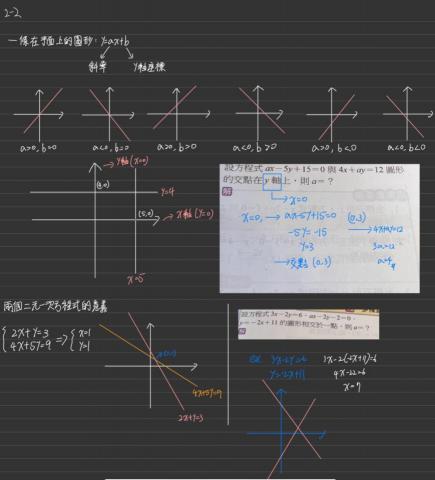 2-2
一條在平面上的圖形: y=ax+b
斜率
y軸座標
a>0, b=0
a<0, b=0
a>0, b>0
a<0, b>0
a>0, b<0
a<0, b<0
y軸 (x=0)
(0,4)
y=4
(5,0)
x軸 (y=0)
x=5
設方程式 ax-5y+15=0 與 4x+ay=12 圖形
的交點在 y 軸上,則 a=?
解
x=0
x=0, → ax-5y+15=0
(0,3)
-5y=-15
→ 4x+ay=12
y=3
3a=12
→交點 (0,3)
a=4
兩個二元一次方程式的意義
2x+y=3
4x+5y=9
=>
x=1
y=1
(1,1)
4x+5y=9
2x+y=3
設方程式 3x-2y=6、ax-2y-2=0、
y=-2x+11 的圖形相交於一點,則 a=?
解
3x-2y=6
y=-2x+11
3x-2(-2x+11)=6